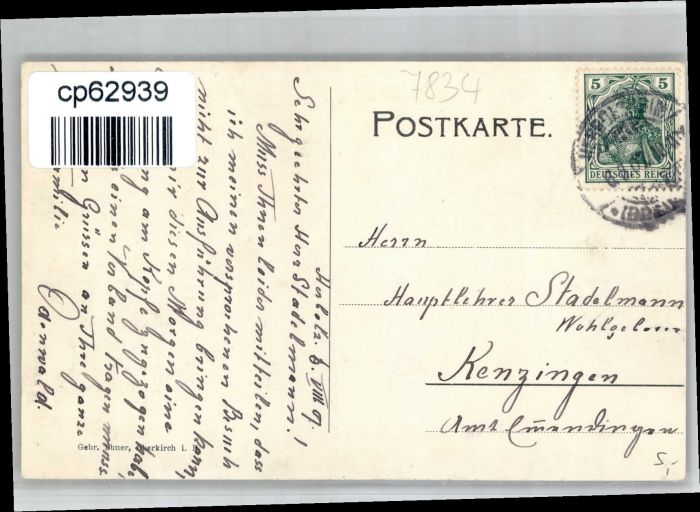 cp62939
7834
POSTKARTE.
5 5
DEUTSCHES REICH
(BADEN)
Herrn
Hauptlehrer Stadelmann
Wohlgeboren
Kenzingen
Amt Emmendingen
5,-
8. VIII 9.
Sehr geehrter Herr Stadelmann!
Muss Ihnen leider mitteilen, dass
ich meinen versprochenen Besuch
nicht zur Ausführung bringen kann,
mir diesen Morgen eine
am Kopfe zugezogen habe,
einen Verband tragen muss.
Grüssen an Ihre ganze
Familie
Oberkirch i.
Gebr. Ebner,